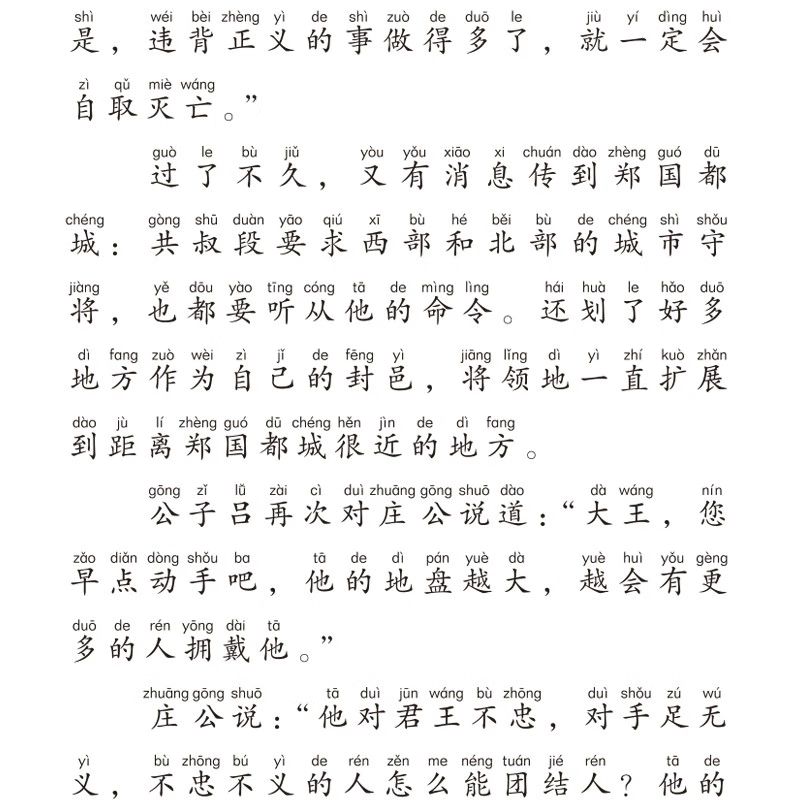 shì wéi bèi zhèng yì de shì zuò de duō le jiù yí dìng huì
是，违背正义的事做得多了，就一定会
zì qǔ miè wáng
自取灭亡。”
guò le bù jiǔ yòu yǒu xiāo xi chuán dào zhèng guó dū
过了不久，又有消息传到郑国都
chéng gòng shū duàn yāo qiú xī bù hé běi bù de chéng shì shǒu
城：共叔段要求西部和北部的城市守
jiàng yě dōu yào tīng cóng tā de mìng lìng hái huà le hǎo duō
将，也都要听从他的命令。还划了好多
dì fang zuò wèi zì jǐ de fēng yì jiāng lǐng dì yì zhí kuò zhǎn
地方作为自己的封邑，将领地一直扩展
dào jù lí zhèng guó dū chéng hěn jìn de dì fang
到距离郑国都城很近的地方。
gōng zǐ lǚ zài cì duì zhuāng gōng shuō dào dà wáng nín
公子吕再次对庄公说道：“大王，您
zǎo diǎn dòng shǒu ba tā de dì pán yuè dà yuè huì yǒu gèng
早点动手吧，他的地盘越大，越会有更
duō de rén yōng dài tā
多的人拥戴他。”
zhuāng gōng shuō tā duì jūn wáng bù zhōng duì shǒu zú wú
庄公说：“他对君王不忠，对手足无
yì bù zhōng bú yì de rén zěn me néng tuán jié rén tā de
义，不忠不义的人怎么能团结人？他的